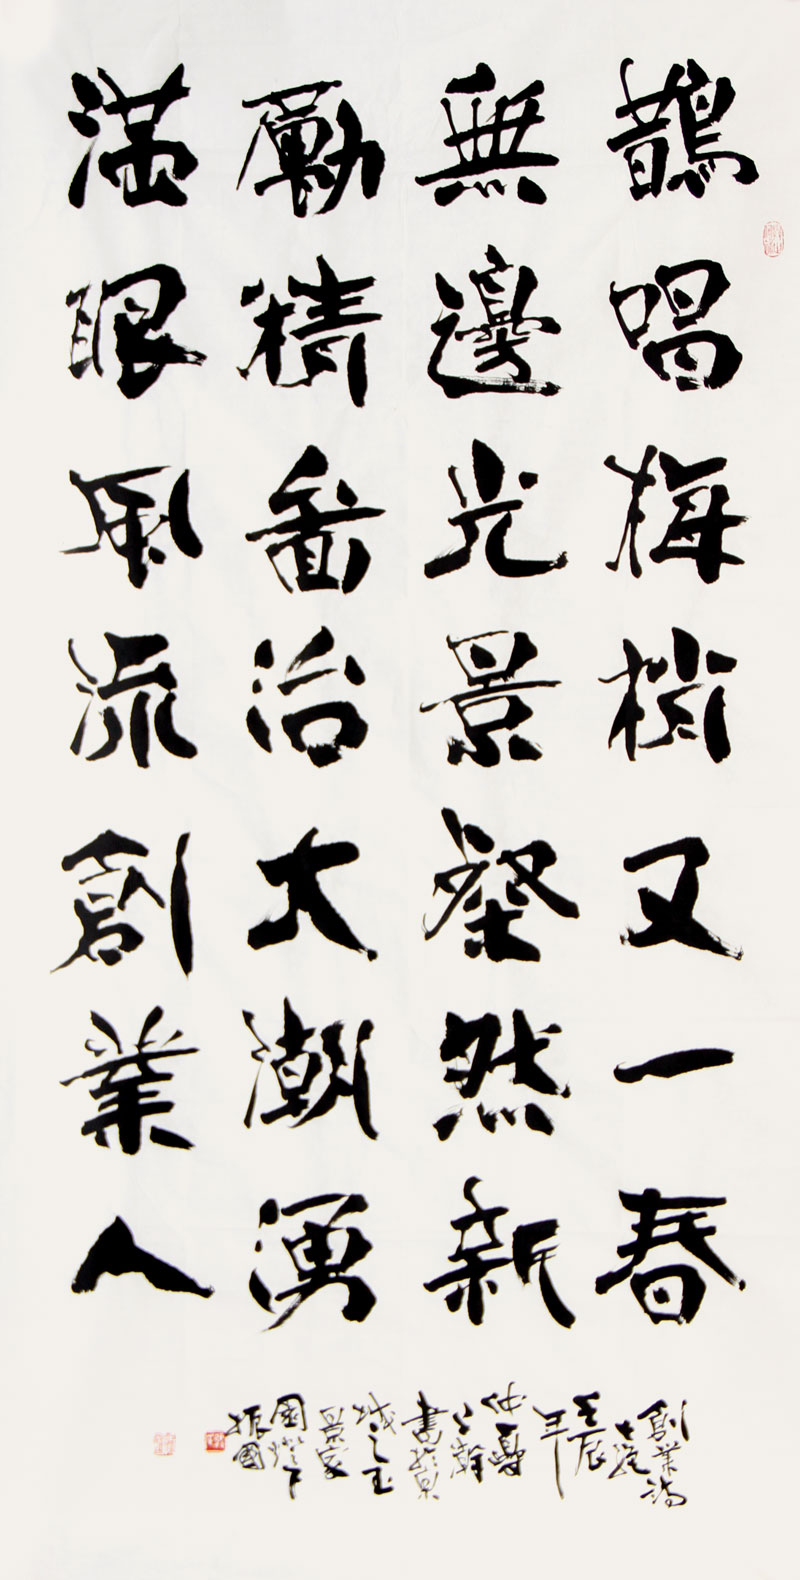 鵲唱梅梢又一春
無邊光景粲然新
勵精啚治大潮湧
满眼風流創業人
創業詩
壬辰
年
仲夏
之瀚
書於泉
城之玉
景家
園燈下
振國